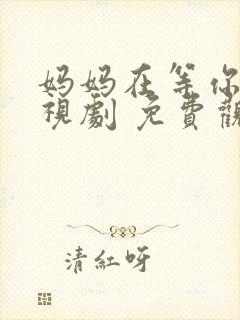 妈妈在等你
視劇 免費觀
清紅呀